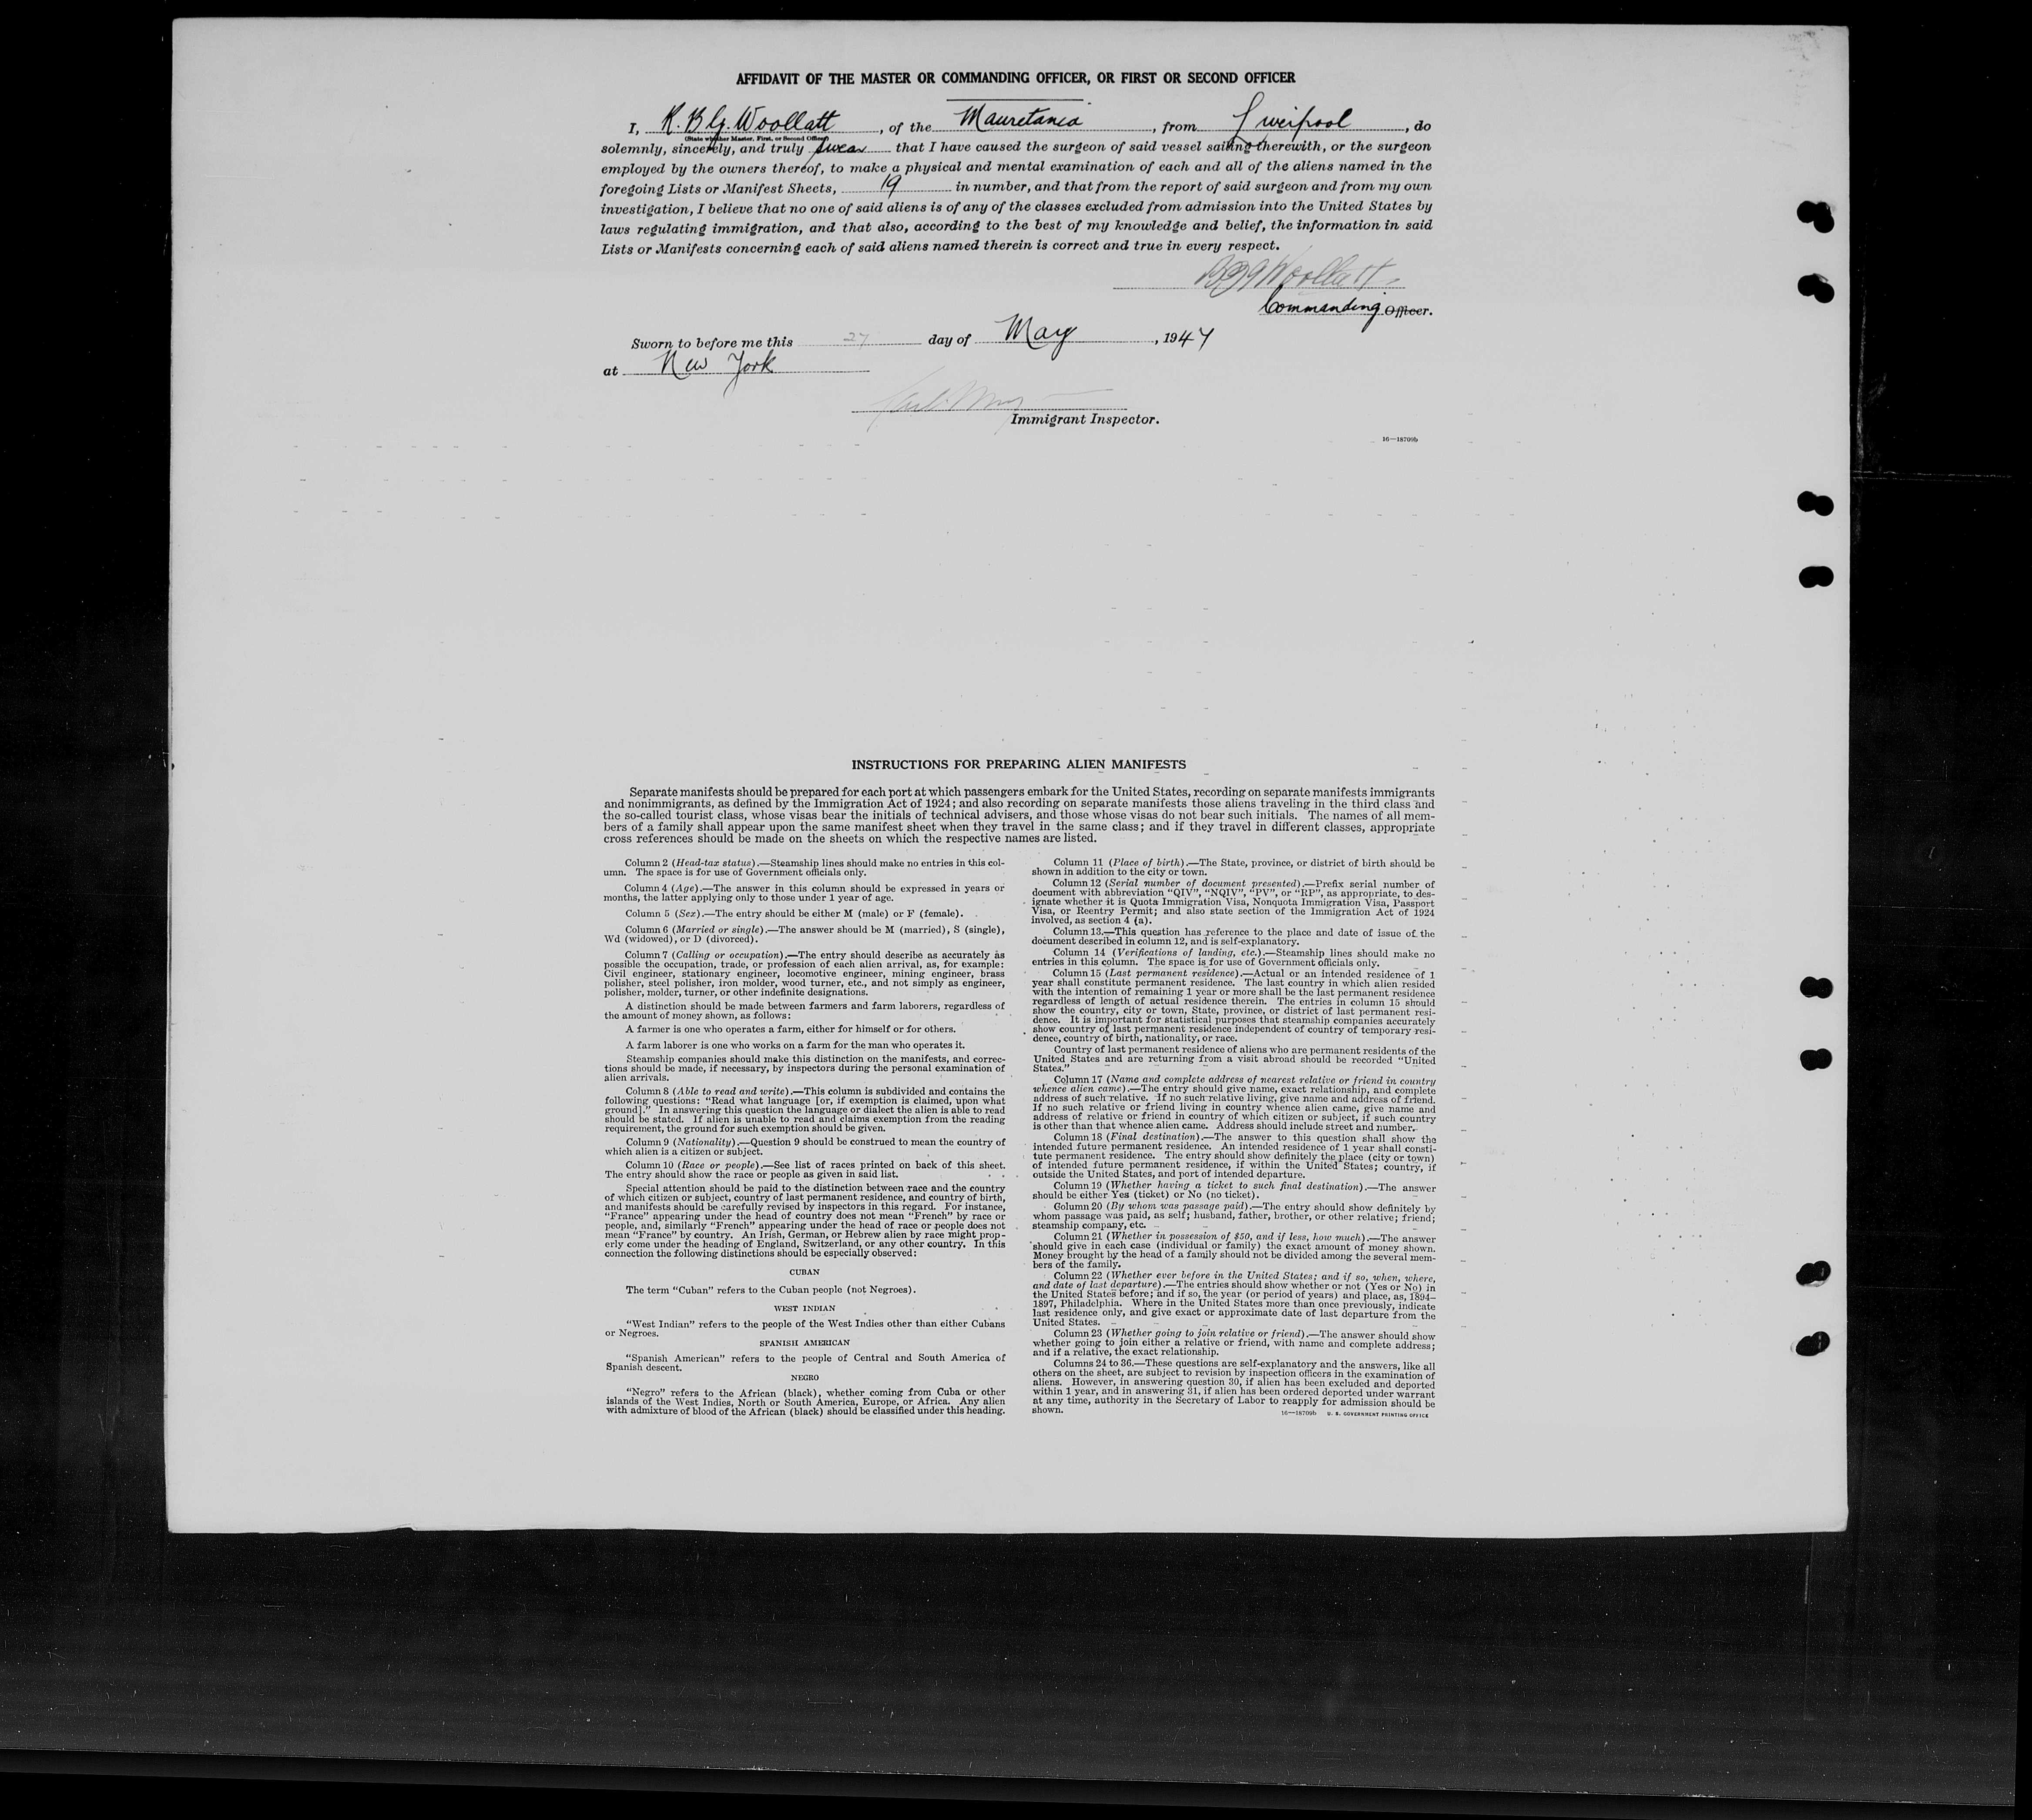 AFFIDAVIT OF THE MASTER OR COMMANDING OFFICER, OR FIRST OR SECOND OFFICER
I, R. B. G. Woollatt, of the Mauretania, from Liverpool, do
(State whether Master, First, or Second Officer)
solemnly, sincerely, and truly swear that I have caused the surgeon of said vessel sailing therewith, or the surgeon
employed by the owners thereof, to make a physical and mental examination of each and all of the aliens named in the
foregoing Lists or Manifest Sheets, 19 in number, and that from the report of said surgeon and from my own
investigation, I believe that no one of said aliens is of any of the classes excluded from admission into the United States by
laws regulating immigration, and that also, according to the best of my knowledge and belief, the information in said
Lists or Manifests concerning each of said aliens named therein is correct and true in every respect.
Woollatt
Commanding Officer.
Sworn to before me this 27 day of May, 1947
at New York
Immigrant Inspector.
16—18709b
INSTRUCTIONS FOR PREPARING ALIEN MANIFESTS
Separate manifests should be prepared for each port at which passengers embark for the United States, recording on separate manifests immigrants
and nonimmigrants, as defined by the Immigration Act of 1924; and also recording on separate manifests those aliens traveling in the third class and
the so-called tourist class, whose visas bear the initials of technical advisers, and those whose visas do not bear such initials. The names of all mem-
bers of a family shall appear upon the same manifest sheet when they travel in the same class; and if they travel in different classes, appropriate
cross references should be made on the sheets on which the respective names are listed.
Column 2 (Head-tax status).—Steamship lines should make no entries in this col-
umn. The space is for use of Government officials only.
Column 4 (Age).—The answer in this column should be expressed in years or
months, the latter applying only to those under 1 year of age.
Column 5 (Sex).—The entry should be either M (male) or F (female).
Column 6 (Married or single).—The answer should be M (married), S (single),
Wd (widowed), or D (divorced).
Column 7 (Calling or occupation).—The entry should describe as accurately as
possible the occupation, trade, or profession of each alien arrival, as, for example:
Civil engineer, stationary engineer, locomotive engineer, mining engineer, brass
polisher, steel polisher, iron molder, wood turner, etc., and not simply as engineer,
polisher, molder, turner, or other indefinite designations.
A distinction should be made between farmers and farm laborers, regardless of
the amount of money shown, as follows:
A farmer is one who operates a farm, either for himself or for others.
A farm laborer is one who works on a farm for the man who operates it.
Steamship companies should make this distinction on the manifests, and correc-
tions should be made, if necessary, by inspectors during the personal examination of
alien arrivals.
Column 8 (Able to read and write).—This column is subdivided and contains the
following questions: "Read what language [or, if exemption is claimed, upon what
ground]." In answering this question the language or dialect the alien is able to read
should be stated. If alien is unable to read and claims exemption from the reading
requirement, the ground for such exemption should be given.
Column 9 (Nationality).—Question 9 should be construed to mean the country of
which alien is a citizen or subject.
Column 10 (Race or people).—See list of races printed on back of this sheet.
The entry should show the race or people as given in said list.
Special attention should be paid to the distinction between race and the country
of which citizen or subject, country of last permanent residence, and country of birth,
and manifests should be carefully revised by inspectors in this regard. For instance,
"France" appearing under the head of country does not mean "French" by race or
people, and, similarly "French" appearing under the head of race or people does not
mean "France" by country. An Irish, German, or Hebrew alien by race might prop-
erly come under the heading of England, Switzerland, or any other country. In this
connection the following distinctions should be especially observed:
CUBAN
The term "Cuban" refers to the Cuban people (not Negroes).
WEST INDIAN
"West Indian" refers to the people of the West Indies other than either Cubans
or Negroes.
SPANISH AMERICAN
"Spanish American" refers to the people of Central and South America of
Spanish descent.
NEGRO
"Negro" refers to the African (black), whether coming from Cuba or other
islands of the West Indies, North or South America, Europe, or Africa. Any alien
with admixture of blood of the African (black) should be classified under this heading.
Column 11 (Place of birth).—The State, province, or district of birth should be
shown in addition to the city or town.
Column 12 (Serial number of document presented).—Prefix serial number of
document with abbreviation "QIV", "NQIV", "PV", or "RP", as appropriate, to des-
ignate whether it is Quota Immigration Visa, Nonquota Immigration Visa, Passport
Visa, or Reentry Permit; and also state section of the Immigration Act of 1924
involved, as section 4 (a).
Column 13.—This question has reference to the place and date of issue of the
document described in column 12, and is self-explanatory.
Column 14 (Verifications of landing, etc.).—Steamship lines should make no
entries in this column. The space is for use of Government officials only.
Column 15 (Last permanent residence).—Actual or an intended residence of 1
year shall constitute permanent residence. The last country in which alien resided
with the intention of remaining 1 year or more shall be the last permanent residence
regardless of length of actual residence therein. The entries in column 15 should
show the country, city or town, State, province, or district of last permanent resi-
dence. It is important for statistical purposes that steamship companies accurately
show country of last permanent residence independent of country of temporary resi-
dence, country of birth, nationality, or race.
Country of last permanent residence of aliens who are permanent residents of the
United States and are returning from a visit abroad should be recorded "United
States."
Column 17 (Name and complete address of nearest relative or friend in country
whence alien came).—The entry should give name, exact relationship, and complete
address of such relative. If no such relative living, give name and address of friend.
If no such relative or friend living in country whence alien came, give name and
address of relative or friend in country of which citizen or subject, if such country
is other than that whence alien came. Address should include street and number.
Column 18 (Final destination).—The answer to this question shall show the
intended future permanent residence. An intended residence of 1 year shall consti-
tute permanent residence. The entry should show definitely the place (city or town)
of intended future permanent residence, if within the United States; country, if
outside the United States, and port of intended departure.
Column 19 (Whether having a ticket to such final destination).—The answer
should be either Yes (ticket) or No (no ticket).
Column 20 (By whom was passage paid).—The entry should show definitely by
whom passage was paid, as self; husband, father, brother, or other relative; friend;
steamship company, etc.
Column 21 (Whether in possession of $50, and if less, how much).—The answer
should give in each case (individual or family) the exact amount of money shown.
Money brought by the head of a family should not be divided among the several mem-
bers of the family.
Column 22 (Whether ever before in the United States; and if so, when, where,
and date of last departure).—The entries should show whether or not (Yes or No) in
the United States before; and if so, the year (or period of years) and place, as, 1894–
1897, Philadelphia. Where in the United States more than once previously, indicate
last residence only, and give exact or approximate date of last departure from the
United States.
Column 23 (Whether going to join relative or friend).—The answer should show
whether going to join either a relative or friend, with name and complete address;
and if a relative, the exact relationship.
Columns 24 to 36.—These questions are self-explanatory and the answers, like all
others on the sheet, are subject to revision by inspection officers in the examination of
aliens. However, in answering question 30, if alien has been excluded and deported
within 1 year, and in answering 31, if alien has been ordered deported under warrant
at any time, authority in the Secretary of Labor to reapply for admission should be
shown.
16—18709b U. S. GOVERNMENT PRINTING OFFICE